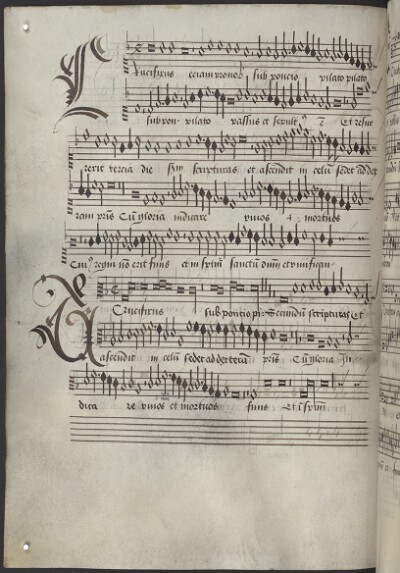 Crucifixus eciam pro nob⁹ sub poncio pilato pilato
sub pon- pilato passus et sepult⁹ ē Et resur
rexit tercia die scripturas et ascendit in celū sedet ad dex
ram pr̄is Cū gloria iudicare viuos mortuos
Cui⁹ regni nō erit finis et in sp̄m̄ sanctū dn̄m et viuifican
Crucifixus sub pontio pi- Secundū scripturas Et
ascendit in celū sedet ad dexterā pr̄is Cū gloria Iu
dica re viuos et mortuos finis Et ī sp̄m̄